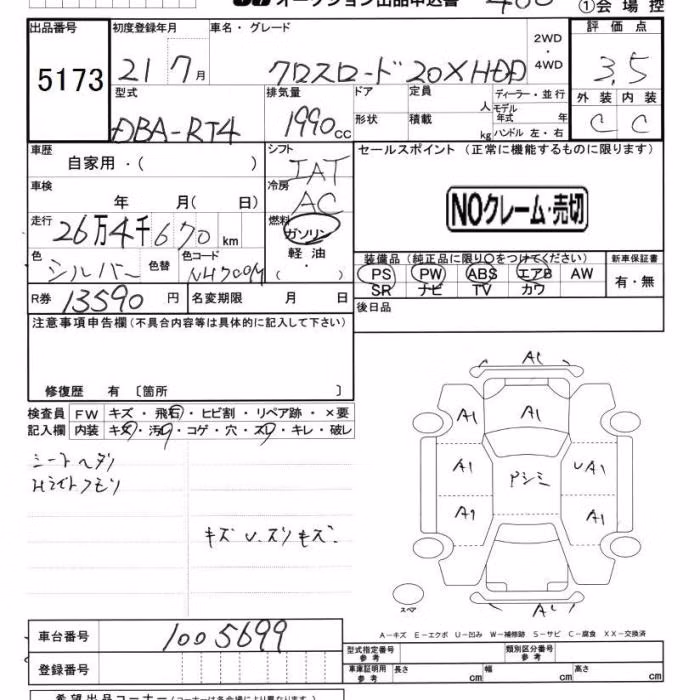 オークション出品申込書
①会場控
出品番号
5173
初度登録年月
21 7月
車名・グレード
クロスロード 20X HDD
2WD
・
4WD
評価点
3.5
外装 内装
C C
型式
DBA-RT4
排気量
1990cc
ドア
形状
定員
人
積載
kg
ディーラー・並行
モデル
年式 年
ハンドル 左・右
車歴
自家用・( )
車検
年 月( 日)
走行
26万4千670km
色
シルバー
色替
色コード
NH700M
シフト
IAT
冷房
AC
燃料
ガソリン
軽油
( )
セールスポイント (正常に機能するものに限ります)
NOクレーム・売切
装備品 (純正品に限り○をつけてください)
PS PW ABS エアB AW
SR ナビ TV カワ
新車保証書
有・無
R券 13590円
名変期限 月 日
後日品
注意事項申告欄(不具合内容等は具体的に記入して下さい)
修復歴 有 〔箇所 〕
検査員
記入欄
FW キズ・飛石・ヒビ割・リペア跡・×要
内装 キズ・汚れ・コゲ・穴・スレ・キレ・破レ
シートヘタリ
Hライトクモリ
キズ U.スリキズ.
A1
A1 A1 A1
A1 Pシミ UA1
A1 A1
A1
スペア
A-キズ E-エクボ U-凹み W-補修跡 S-サビ C-腐食 XX-交換済
車台番号
1005699
登録番号
型式指定番号
参考
類別区分番号
参考
車庫証明用
参考
長さ cm 幅 cm 高さ cm
希望出品コーナー(コーナーは各会場により異なります)